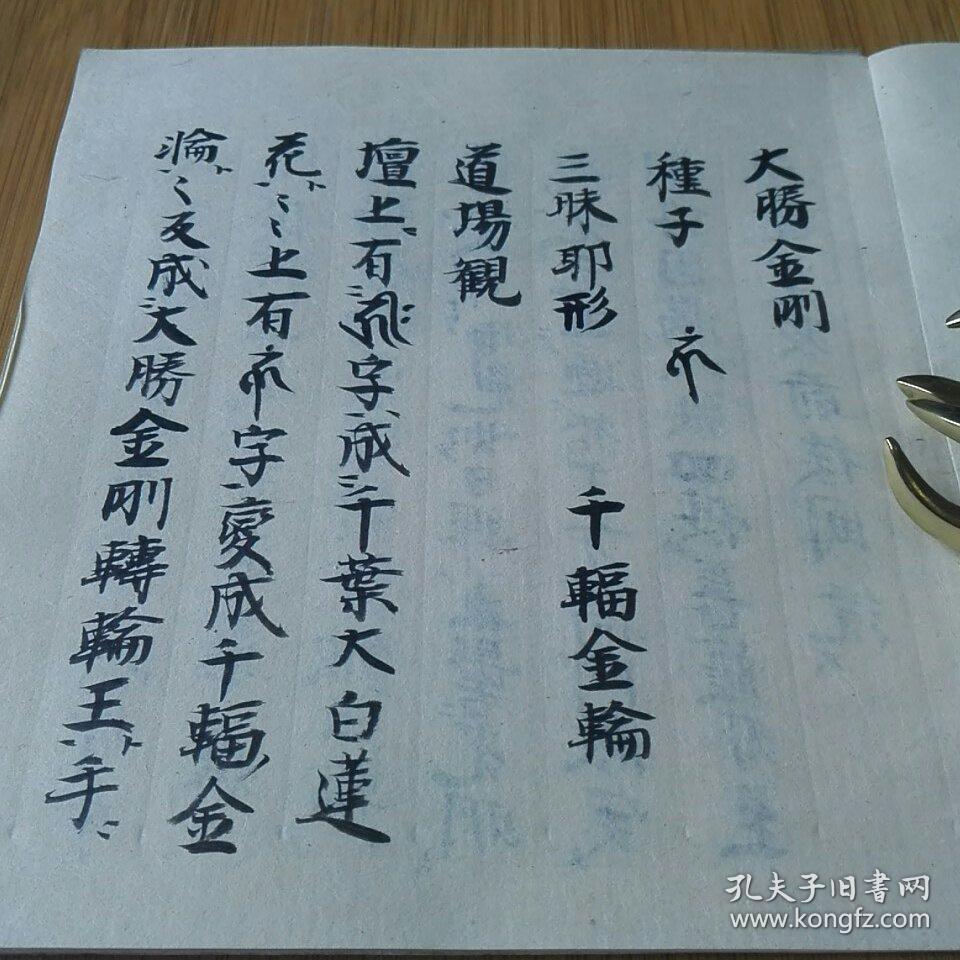 大勝金剛
種子
三昧耶形 千輻金輪
道場観
壇上有 字成千葉大白蓮
花〻上有 字変成千輻金
輪〻反成大勝金剛轉輪王手
孔夫子旧書网
www.kongfz.com